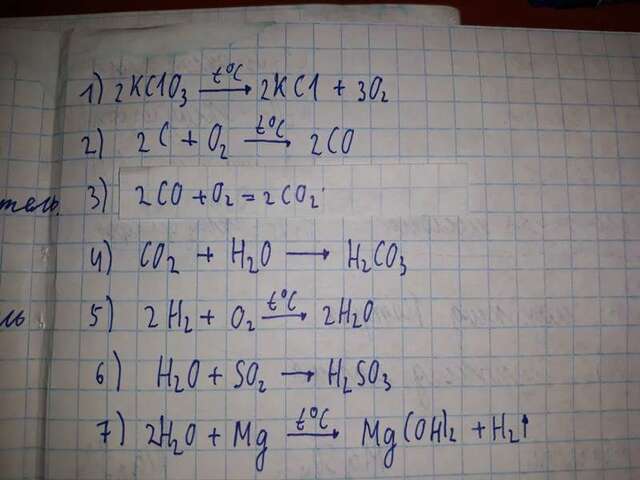 1) 2KClO₃ t°C→ 2KCl + 3O₂
2) 2C + O₂ t°C→ 2CO
тель. 3) 2CO + O₂ = 2CO₂
4) CO₂ + H₂O → H₂CO₃
ль 5) 2H₂ + O₂ t°C→ 2H₂O
6) H₂O + SO₂ → H₂SO₃
7) 2H₂O + Mg t°C→ Mg(OH)₂ + H₂↑